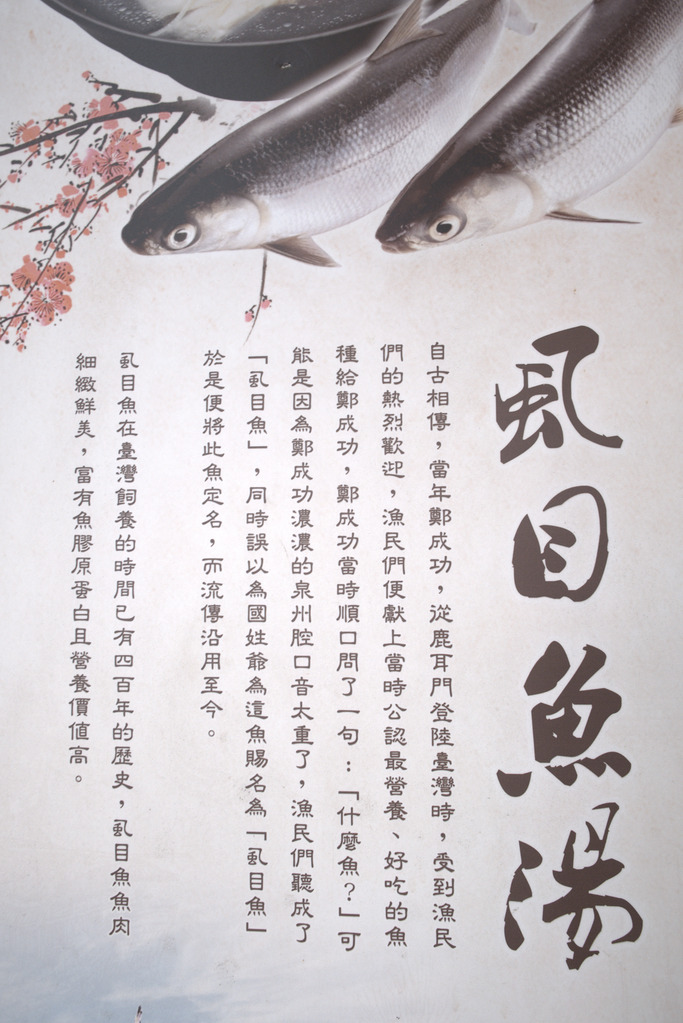 虱目魚湯
自古相傳，當年鄭成功，從鹿耳門登陸臺灣時，受到漁民
們的熱烈歡迎，漁民們便獻上當時公認最營養、好吃的魚
種給鄭成功，鄭成功當時順口問了一句：「什麼魚？」可
能是因為鄭成功濃濃的泉州腔口音太重了，漁民們聽成了
「虱目魚」，同時誤以為國姓爺為這魚賜名為「虱目魚」
於是便將此魚定名，而流傳沿用至今。
虱目魚在臺灣飼養的時間已有四百年的歷史，虱目魚魚肉
細緻鮮美，富有魚膠原蛋白且營養價值高。